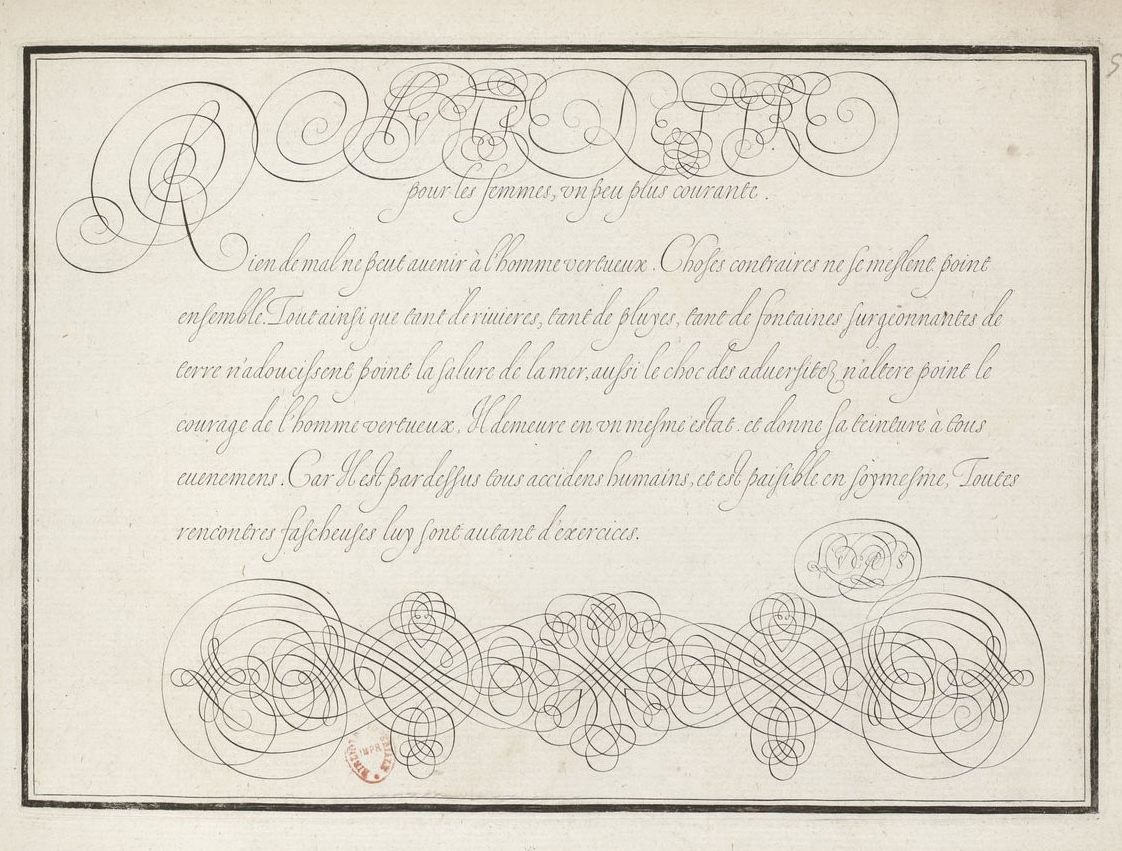 AVLTRE LETTRE
pour les femmes, vn peu plus courante.
Rien de mal ne peut auenir à l'homme vertueux. Choses contraires ne se meslent point
ensemble. Tout ainsi que tant de riuieres, tant de pluyes, tant de fontaines surgeonnantes de
terre n'adoucissent point la salure de la mer, aussi le choc des aduersitez n'altere point le
courage de l'homme vertueux. Il demeure en vn mesme estat. et donne sa teinture à tous
euenemens. Car Il est par dessus tous accidens humains, et est paisible en soymesme, Toutes
rencontres fascheuses luy sont autant d'exercices.